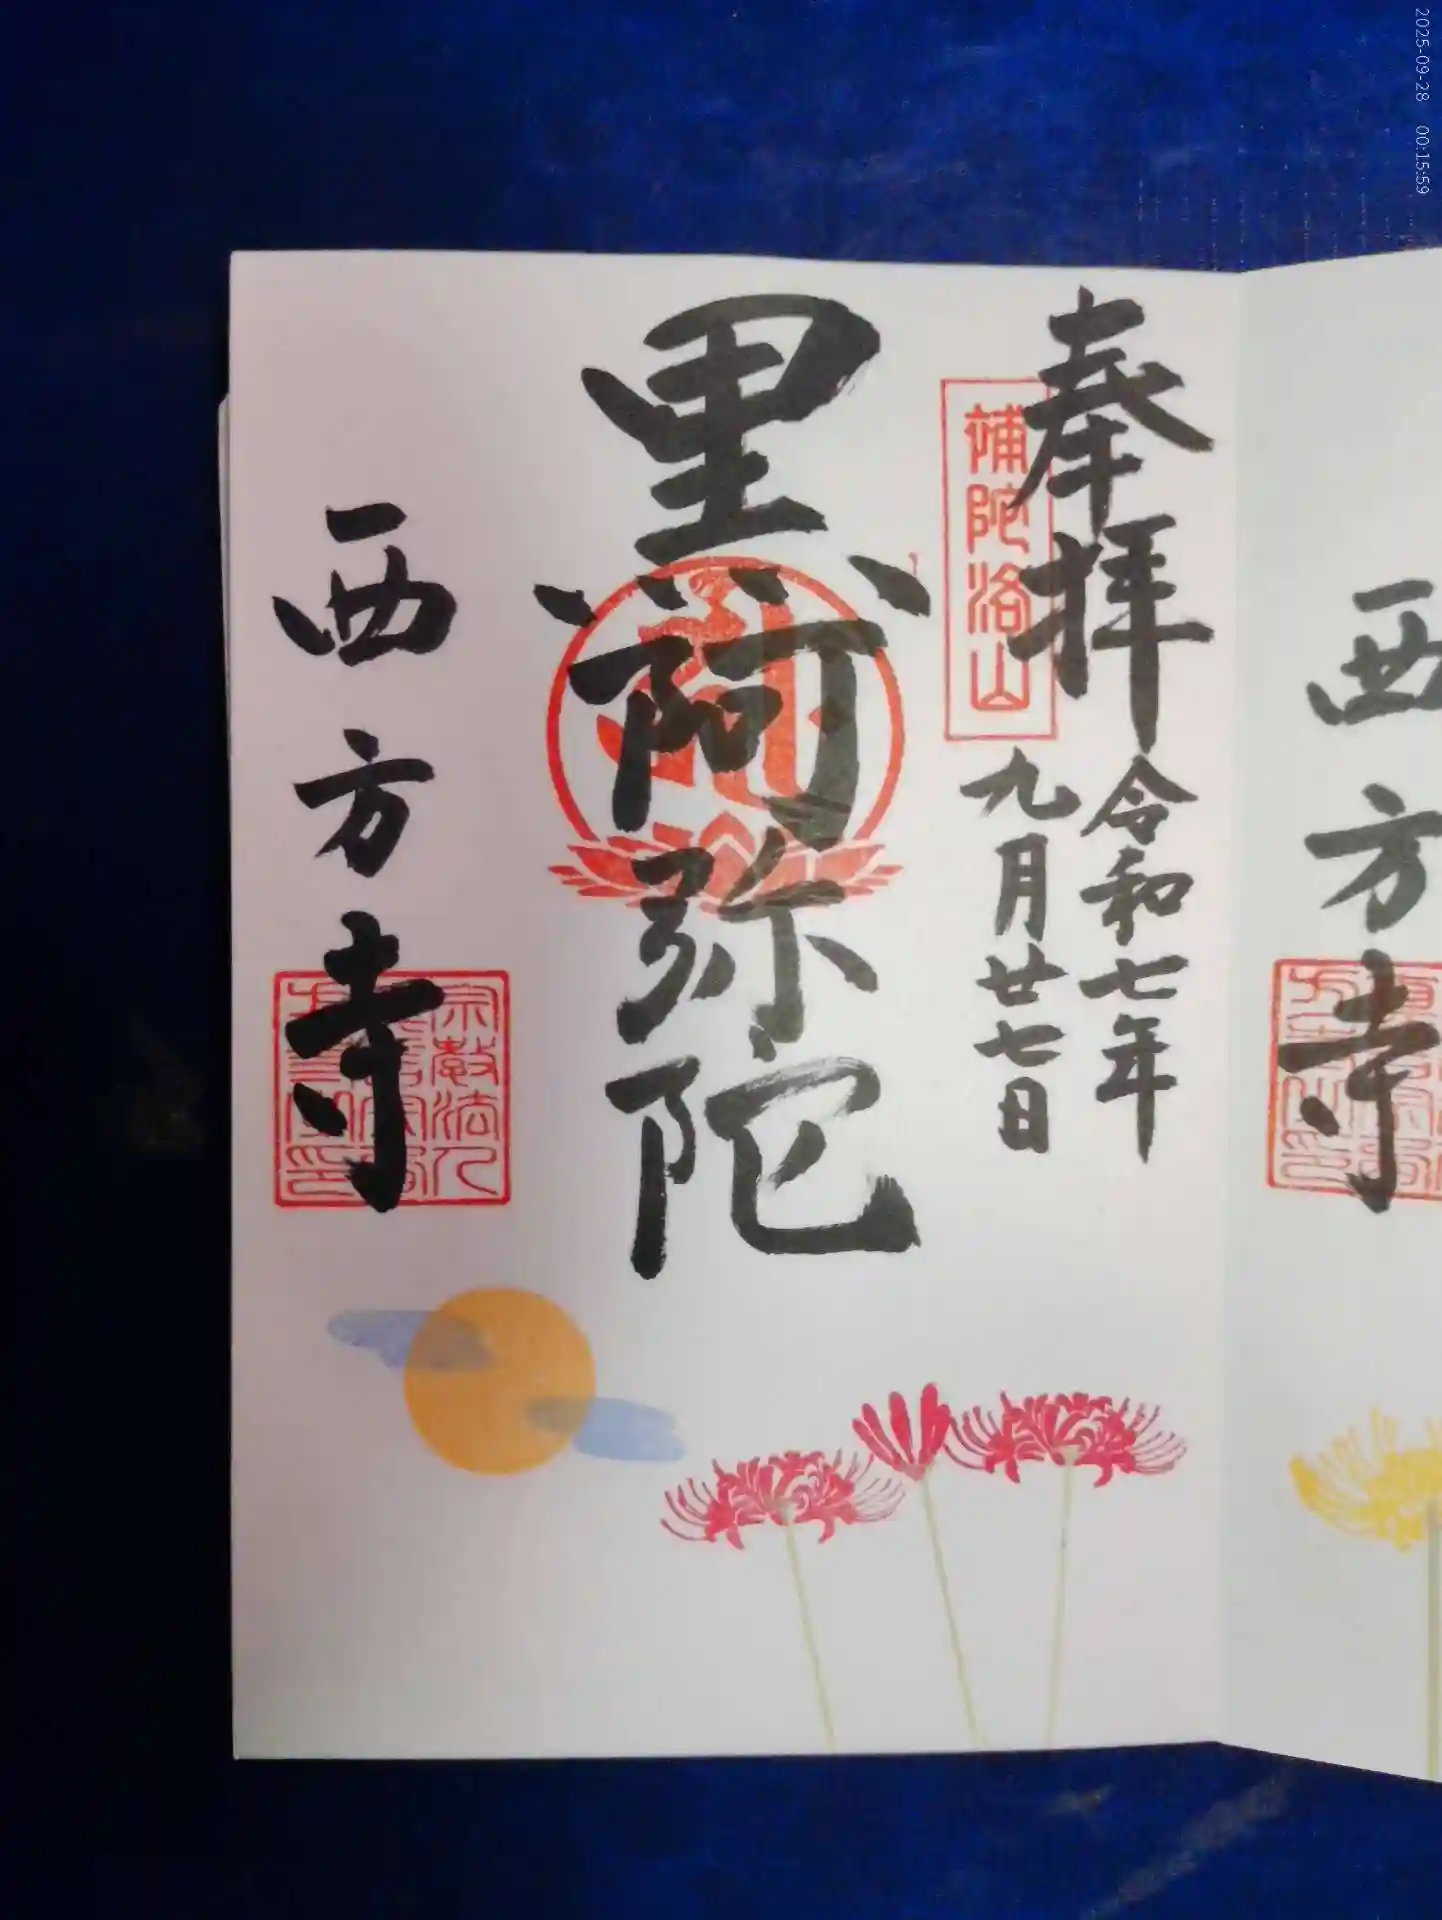 奉拝
補陀洛山
令和七年
九月廿七日
黒阿弥陀
西方寺
西方寺
2025-09-28 00:15:59